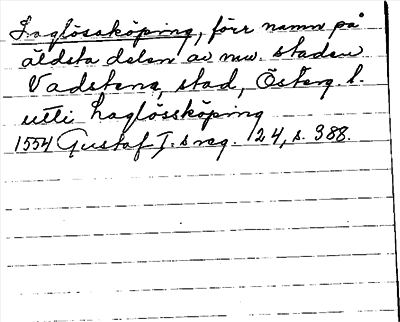 Laglössköping, förr namn på
äldsta delen av nuv. staden
Vadstena, stad, Österg. l.
utti Laglössköping
1554 Gustaf I.s reg. 24, s. 388.